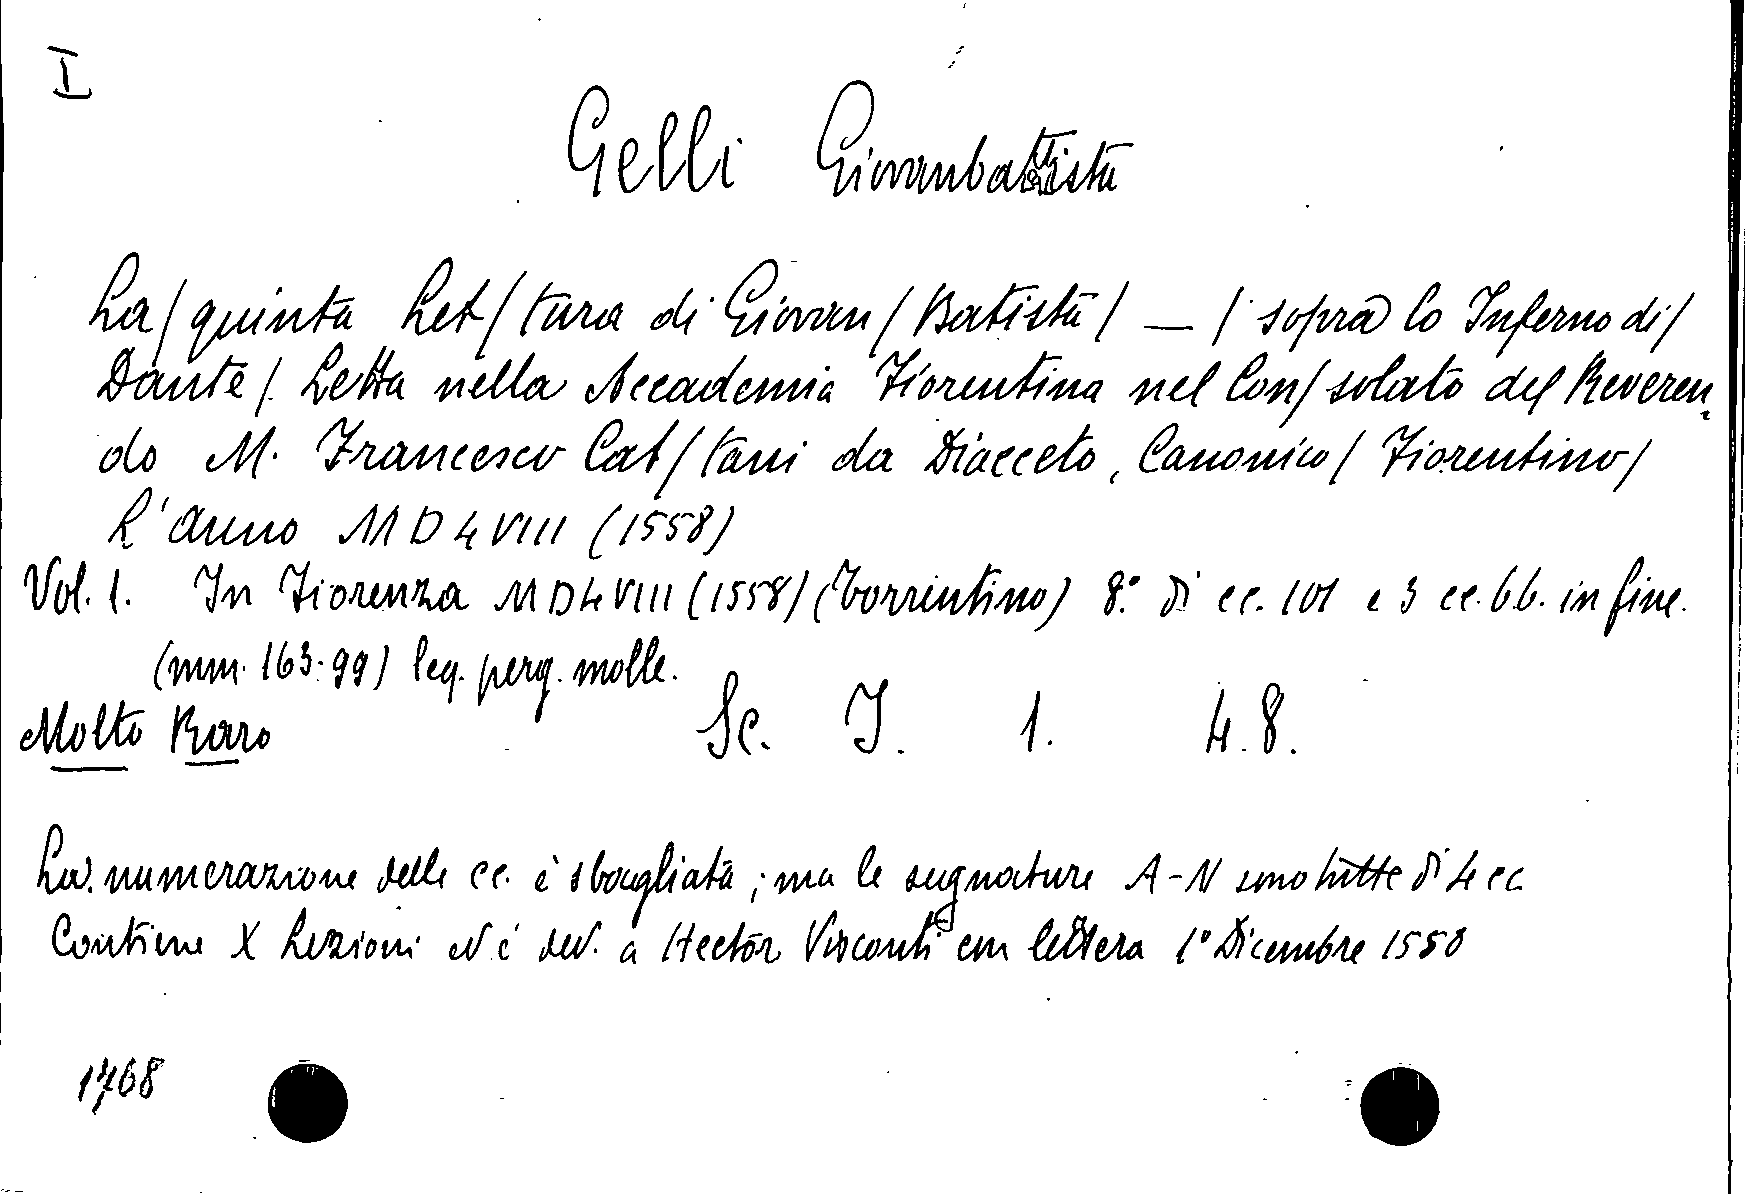 I
Gelli Giovanbattista
La/quinta Let/tura di Giovan/Batista/ — / sopra lo Inferno di/
Dante/. Letta nella Accademia Fiorentina nel Con/solato del Reveren,
do M. Francesco Cat/tani da Diacceto, Canonico/ Fiorentino/
L'anno MDLVIII (1558)
Vol. 1. In Fiorenza MDLVIII (1558) (Torrentino) 8.° di cc. 101 e 3 cc. bb. in fine.
(mm. 163.99) leg. perg. molle.
Molto Raro Sc. I. 1. 48.
La numerazione delle cc. è sbagliata; ma le segnature A-N sono tutte di 4 cc.
Contiene X Lezioni ed è ded. a Hector Visconti con lettera 1° Dicembre 1558
1768